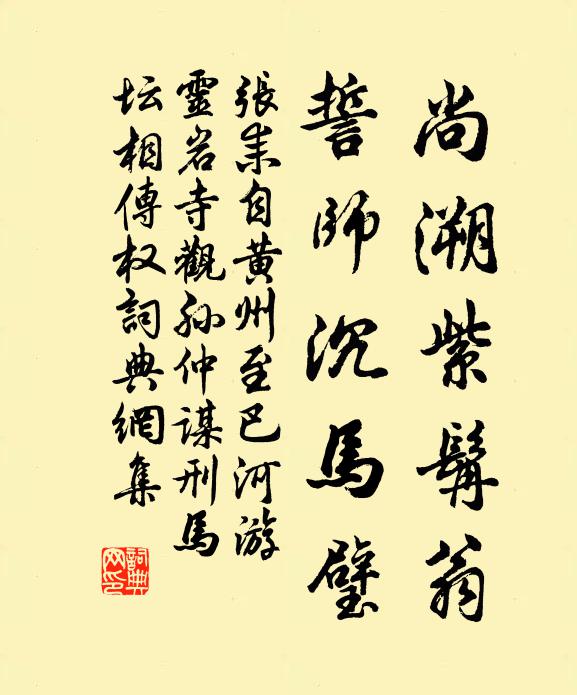 尚溯紫髯翁
誓師沉馬璧
張耒自黃州至巴河游
靈岩寺觀孫仲謀刑馬
坛相傳权詞典網集
詞典网印